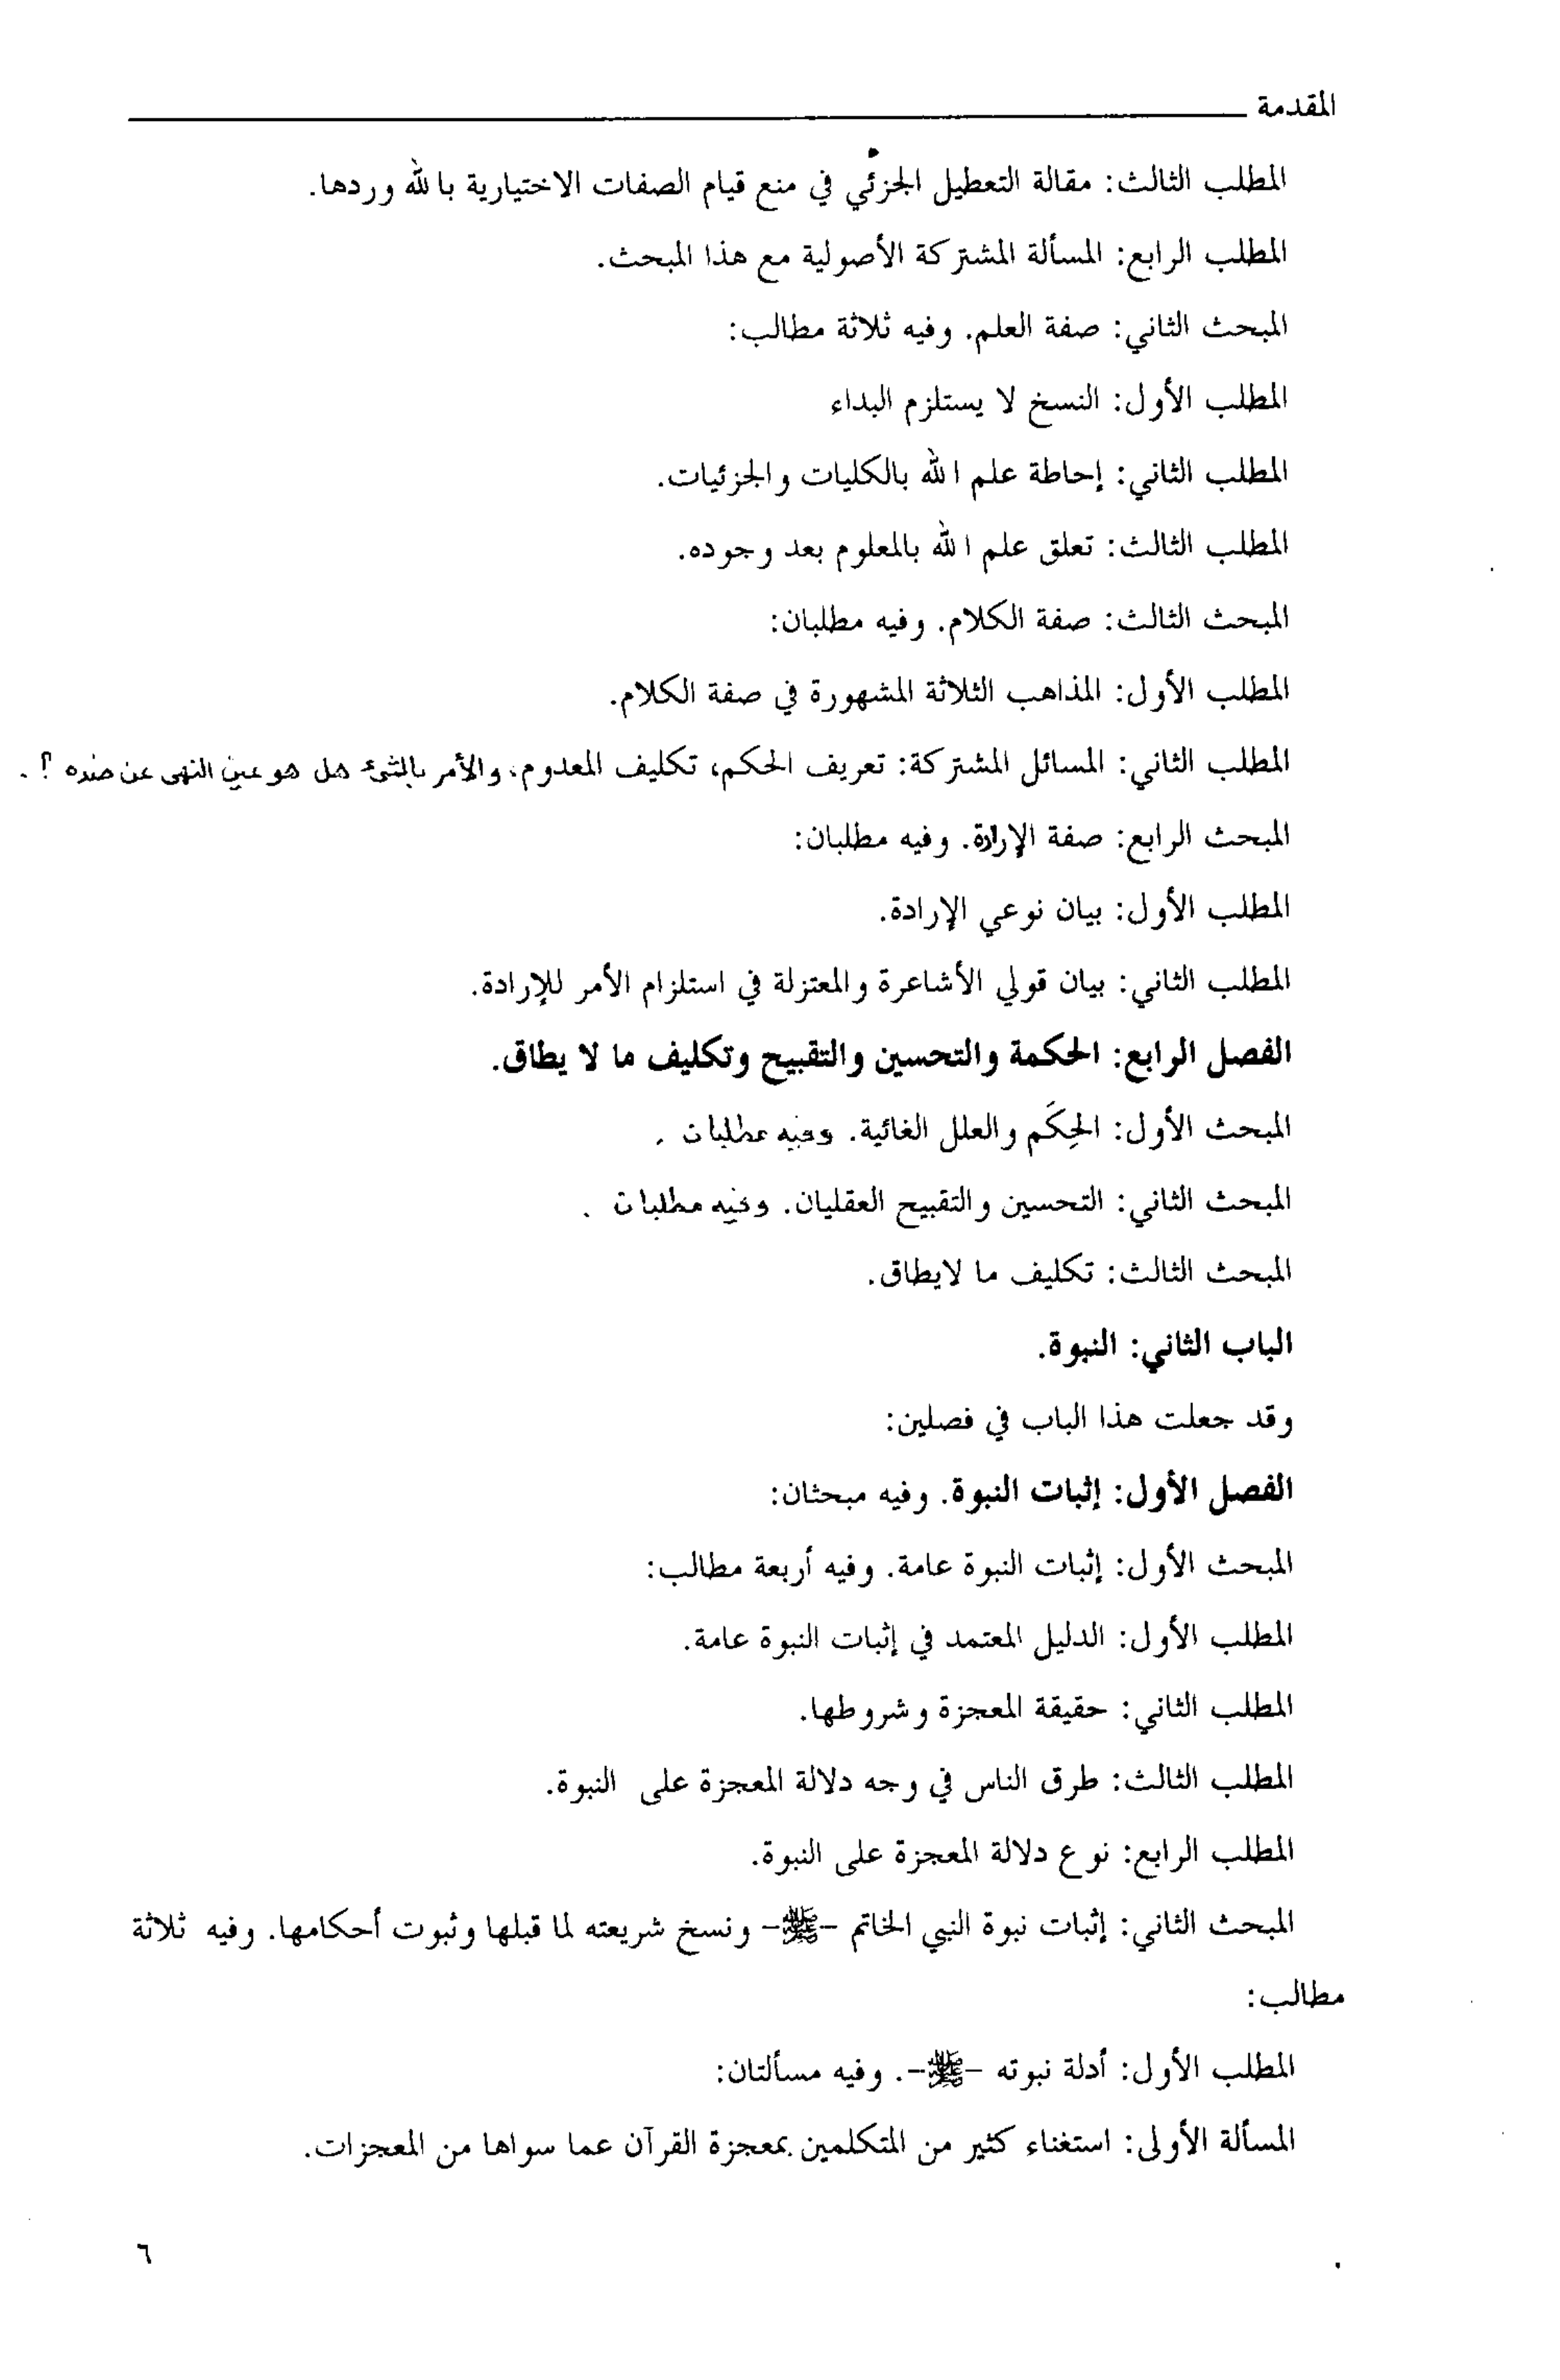 المقدمة
المطلب الثالث: مقالة التعطيل الجزئي في منع قيام الصفات الاختيارية بالله وردها.
المطلب الرابع: المسألة المشتركة الأصولية مع هذا المبحث.
المبحث الثاني: صفة العلم. وفيه ثلاثة مطالب:
المطلب الأول: النسخ لا يستلزم البداء
المطلب الثاني: إحاطة علم الله بالكليات والجزئيات.
المطلب الثالث: تعلق علم الله بالمعلوم بعد وجوده.
المبحث الثالث: صفة الكلام. وفيه مطلبان:
المطلب الأول: المذاهب الثلاثة المشهورة في صفة الكلام.
المطلب الثاني: المسائل المشتركة: تعريف الحكم، تكليف المعدوم، والأمر بالشئ هل هو عين النهى عن ضده ؟ .
المبحث الرابع: صفة الإرادة. وفيه مطلبان:
المطلب الأول: بيان نوعي الإرادة.
المطلب الثاني: بيان قولي الأشاعرة والمعتزلة في استلزام الأمر للإرادة.
الفصل الرابع: الحكمة والتحسين والتقبيح وتكليف ما لا يطاق.
المبحث الأول: الحِكَم والعلل الغائية. وفيه مطلبان .
المبحث الثاني: التحسين والتقبيح العقليان. وفيه مطلبان .
المبحث الثالث: تكليف ما لايطاق.
الباب الثاني: النبوة.
وقد جعلت هذا الباب في فصلين:
الفصل الأول: إثبات النبوة. وفيه مبحثان:
المبحث الأول: إثبات النبوة عامة. وفيه أربعة مطالب:
المطلب الأول: الدليل المعتمد في إثبات النبوة عامة.
المطلب الثاني: حقيقة المعجزة وشروطها.
المطلب الثالث: طرق الناس في وجه دلالة المعجزة على النبوة.
المطلب الرابع: نوع دلالة المعجزة على النبوة.
المبحث الثاني: إثبات نبوة النبي الخاتم -ﷺ- ونسخ شريعته لما قبلها وثبوت أحكامها. وفيه ثلاثة
مطالب:
المطلب الأول: أدلة نبوته -ﷺ-. وفيه مسألتان:
المسألة الأولى: استغناء كثير من المتكلمين بمعجزة القرآن عما سواها من المعجزات.
٦